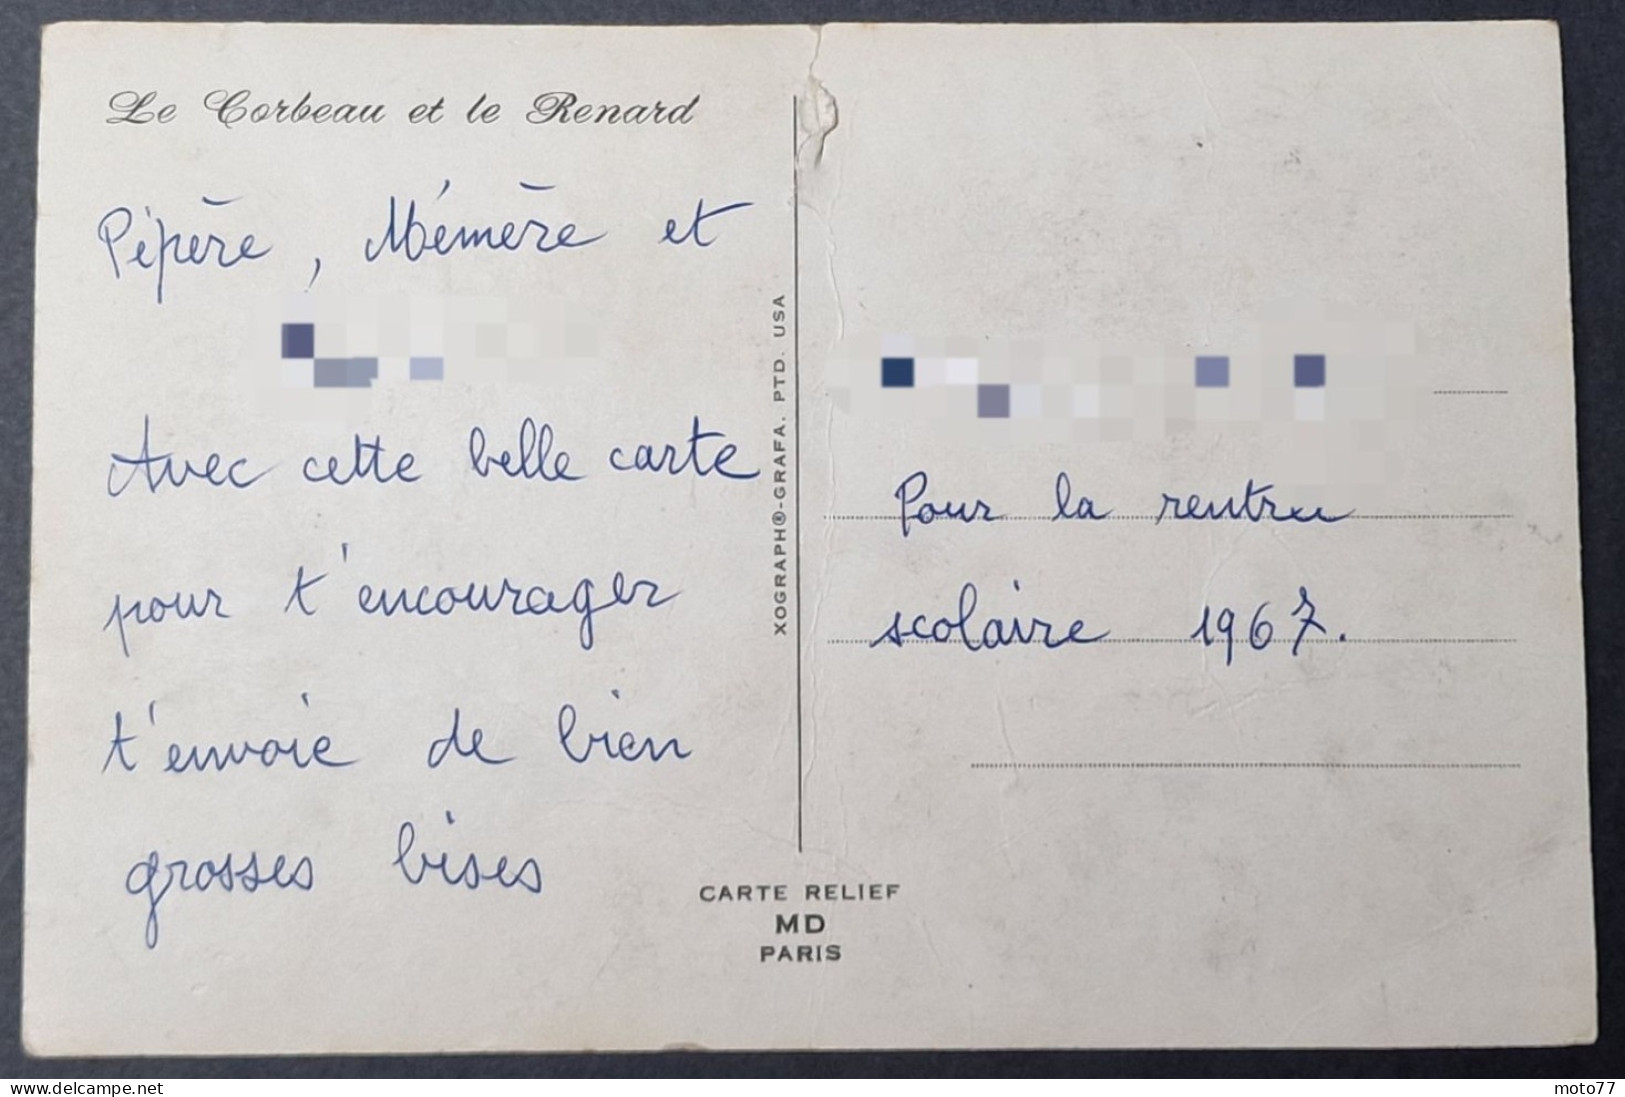 Le Corbeau et le Renard
Pépère, Mémère et
Avec cette belle carte
pour t'encourager
t'envoie de bien
grosses bises
XOGRAPH®-GRAFA. PTD. USA
Pour la rentrée
scolaire 1967.
CARTE RELIEF
MD
PARIS
delcampe.net
moto77